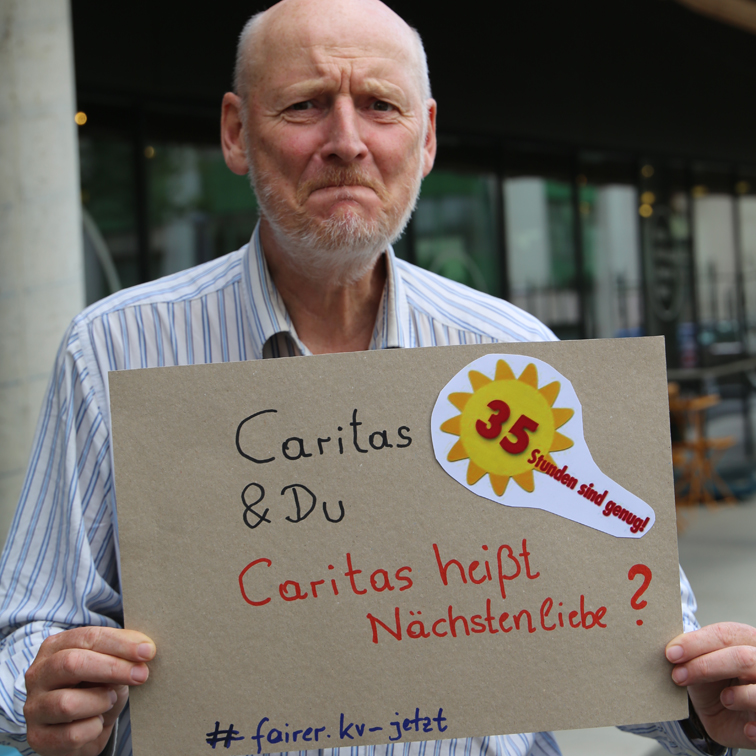 Caritas
& Du
35
Stunden sind genug!
Caritas heißt
Nächstenliebe ?
# fairer.kv-jetzt